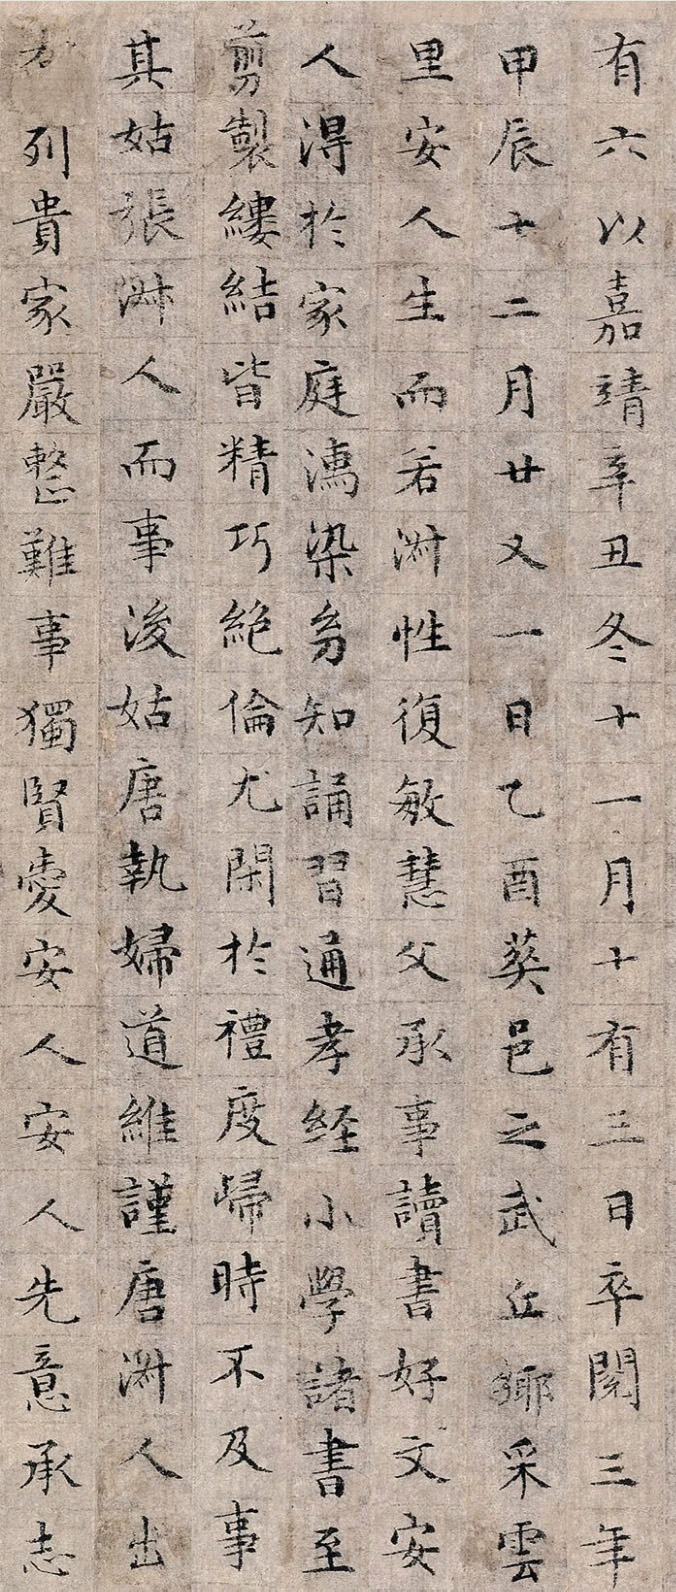 有六以嘉靖辛丑冬十一月十有三日卒閱三年
甲辰十二月廿又一日乙酉葬邑之武丘鄉采雲
里安人生而若淑性復敏慧父承事讀書好文安
人得於家庭濡染多知誦習通孝経小學諸書至
剪製縷結皆精巧絶倫尤閑於禮度歸時不及事
其姑張淑人而事後姑唐執婦道維謹唐淑人出
右列貴家嚴整難事獨賢愛安人安人先意承志